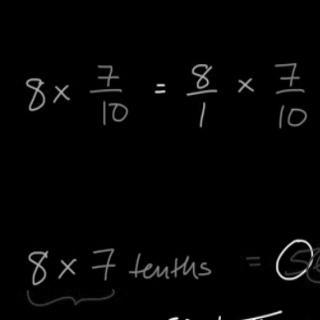 8 × 7/10 = 8/1 × 7/10
8 × 7 tenths =